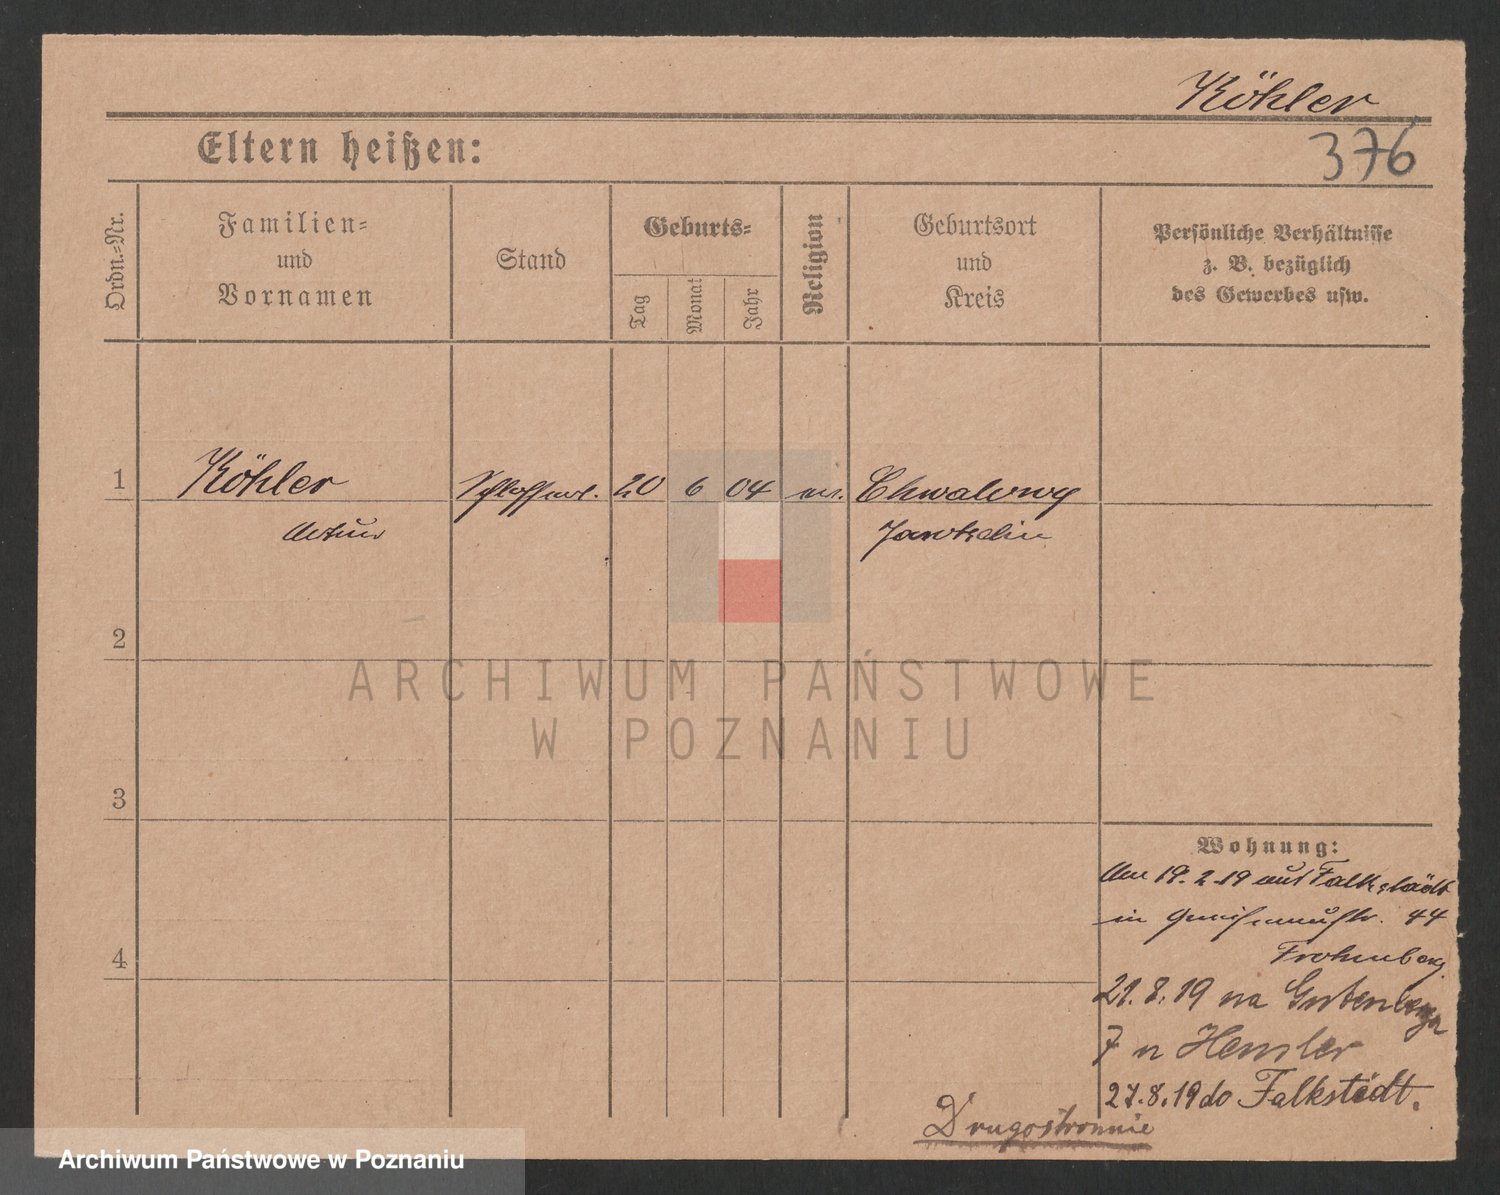 Köhler
376
Eltern heißen:
Ordn.-Nr.
Familien-
und
Vornamen
Stand
Geburts-
Tag
Monat
Jahr
Religion
Geburtsort
und
Kreis
Persönliche Verhältnisse
z. B. bezüglich
des Gewerbes usw.
1
Köhler
20
6
04
Chwalowy
Artur
Jarotschin
2
ARCHIWUM PAŃSTWOWE
W POZNANIU
3
Wohnung:
Am 19.2.19 aus Falkstädt
in Gneisenaustr. 44
4
Frohnberg
21.8.19 na Gutenberga
7 u Hensler
27.8.19 do Falkstädt.
Drugostronnie
Archiwum Państwowe w Poznaniu